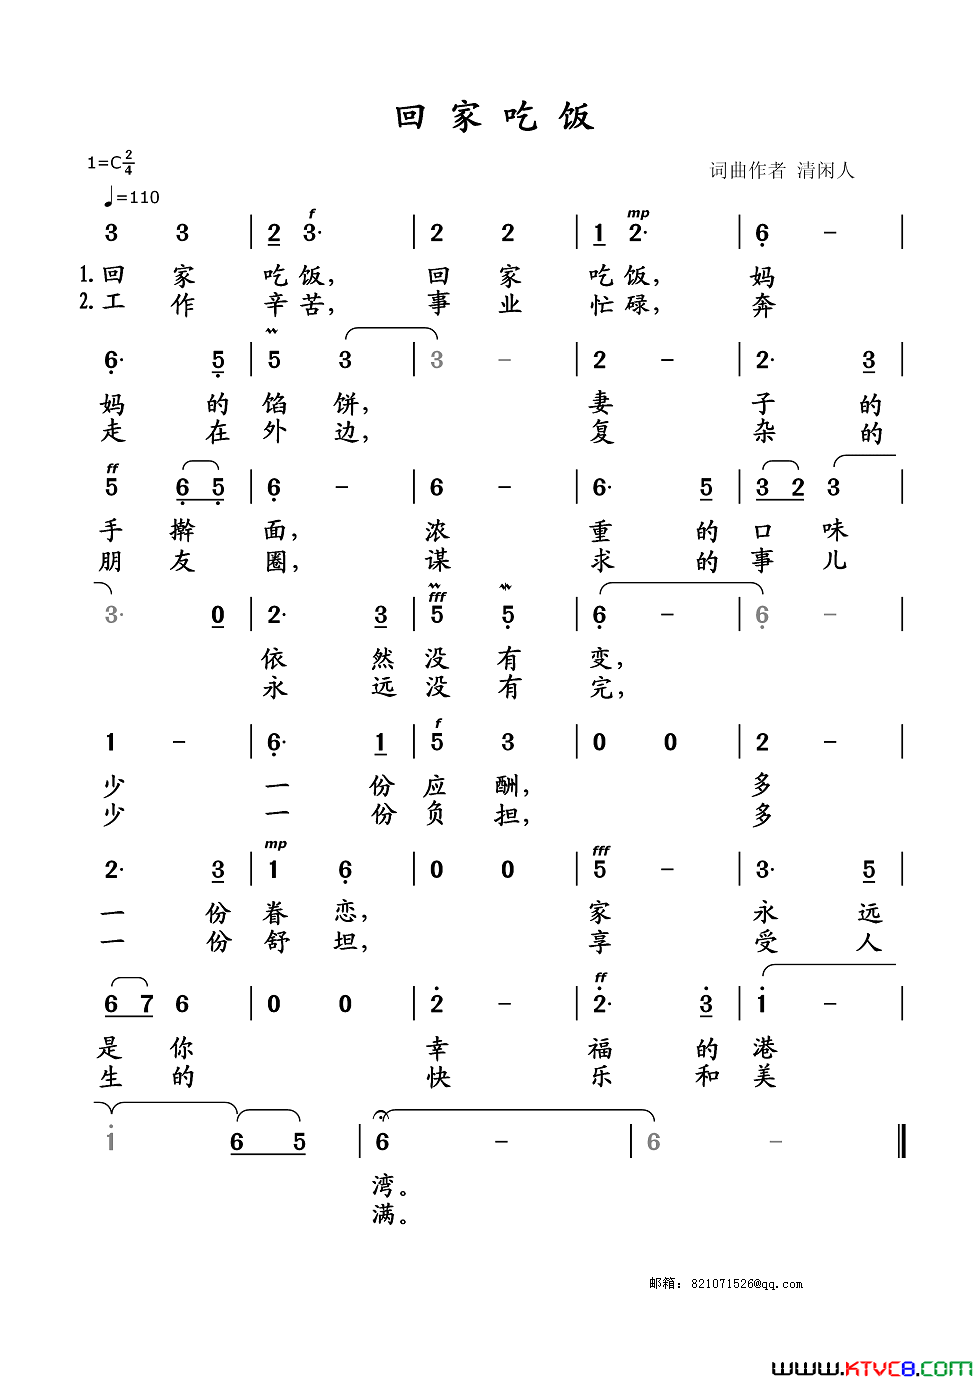 回家吃饭
1=C 2/4
词曲作者 清闲人
♩=110
f mp
3 3 | 2 3· | 2 2 | 1 2· | 6 – |
1.回家吃饭,回家吃饭,妈
2.工作辛苦,事业忙碌,奔
6· 5 | 5 3 | 3 – | 2 – | 2· 3 |
妈的馅饼,妻子的
走在外边,复杂的
ff
5 6 5 | 6 – | 6 – | 6· 5 | 3 2 3 |
手擀面,浓重的口味
朋友圈,谋求的事儿
fff
3· 0 | 2· 3 | 5 5 | 6 – | 6 – |
依然没有变,
永远没有完,
f
1 – | 6· 1 | 5 3 | 0 0 | 2 – |
少一份应酬,多
少一份负担,多
mp fff
2· 3 | 1 6 | 0 0 | 5 – | 3· 5 |
一份眷恋,家永远
一份舒坦,享受人
ff
6 7 6 | 0 0 | 2 – | 2· 3 | 1 – |
是你幸福的港
生的快乐和美
1 6 5 | 6 – | 6 – ‖
湾。
满。
邮箱：821071526@qq.com
www.KTVC8.com